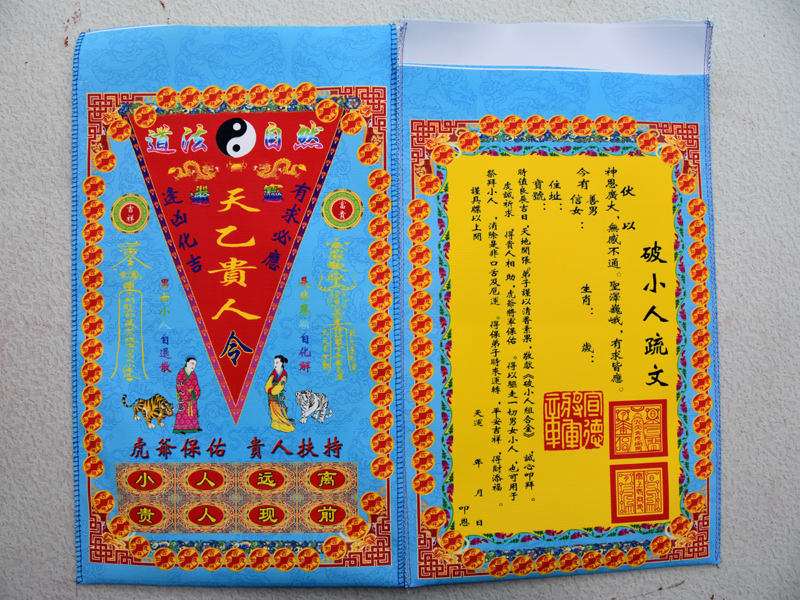 道法自然
有求必應
逢凶化吉
天乙貴人令
吉祥
富貴
男女小人自退散
自化解
虎爺保佑 貴人扶持
小人远离
贵人现前
破小人疏文
伏以
神恩廣大，無感不通。聖澤巍峨，有求皆應。
今有善男信女： 生肖： 歲：
住址：
寶號：
時值良辰吉日 天地開張 弟子謹以清香素果，敬獻《破小人組合金》 誠心叩拜。
虔誠祈求 得貴人相助，虎爺將軍保佑 。得以驅走一切男女小人，也可用于
祭拜小人 ，消除是非口舌及厄運 。得保弟子時來運轉 ，平安吉祥 ，得財添福 。
謹具牒以上聞
天運 年 月 日
叩恩